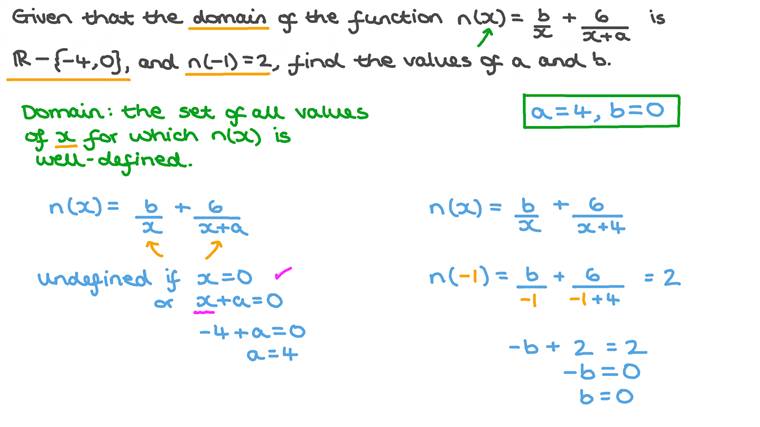 Given that the domain of the function n(x) = b/x + 6/(x+a) is
ℝ - {-4, 0}, and n(-1) = 2, find the values of a and b.
Domain: the set of all values
of x for which n(x) is
well-defined.
a = 4, b = 0
n(x) = b/x + 6/(x+a)
undefined if x = 0 ✓
or x + a = 0
-4 + a = 0
a = 4
n(x) = b/x + 6/(x+4)
n(-1) = b/-1 + 6/(-1+4) = 2
-b + 2 = 2
-b = 0
b = 0